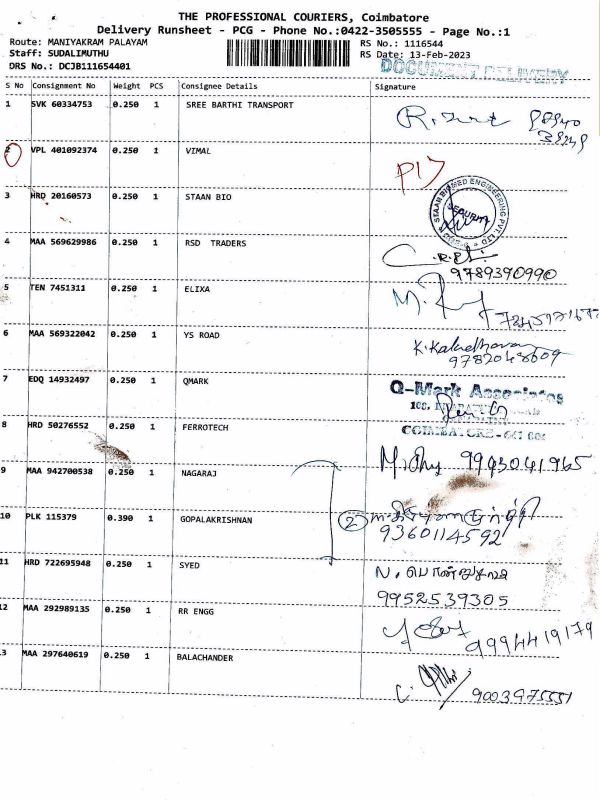 THE PROFESSIONAL COURIERS, Coimbatore
Delivery Runsheet - PCG - Phone No.:0422-3505555 - Page No.:1
Route: MANIYAKRAM PALAYAM
RS No.: 1116544
Staff: SUDALIMUTHU
RS Date: 13-Feb-2023
DRS No.: DCJB111654401
DOCUMENT DELIVERY
S No Consignment No Weight PCS Consignee Details Signature
1 SVK 60334753 0.250 1 SREE BARTHI TRANSPORT
2 VPL 401092374 0.250 1 VIMAL
3 HRD 20160573 0.250 1 STAAN BIO
STAAN BIOMED ENGINEERING PVT LTD
SECURITY
4 MAA 569629986 0.250 1 RSD TRADERS
9789390990
5 TEN 7451311 0.250 1 ELIXA
6 MAA 569322042 0.250 1 YS ROAD
9782048609
7 EDQ 14932497 0.250 1 QMARK
Q-Mark Associates
8 HRD 50276552 0.250 1 FERROTECH
9943041965
9 MAA 942700538 0.250 1 NAGARAJ
10 PLK 115379 0.390 1 GOPALAKRISHNAN
2
9360114592
11 HRD 722695948 0.250 1 SYED
9952539305
12 MAA 292989135 0.250 1 RR ENGG
9994419179
13 MAA 297640619 0.250 1 BALACHANDER
9003975551